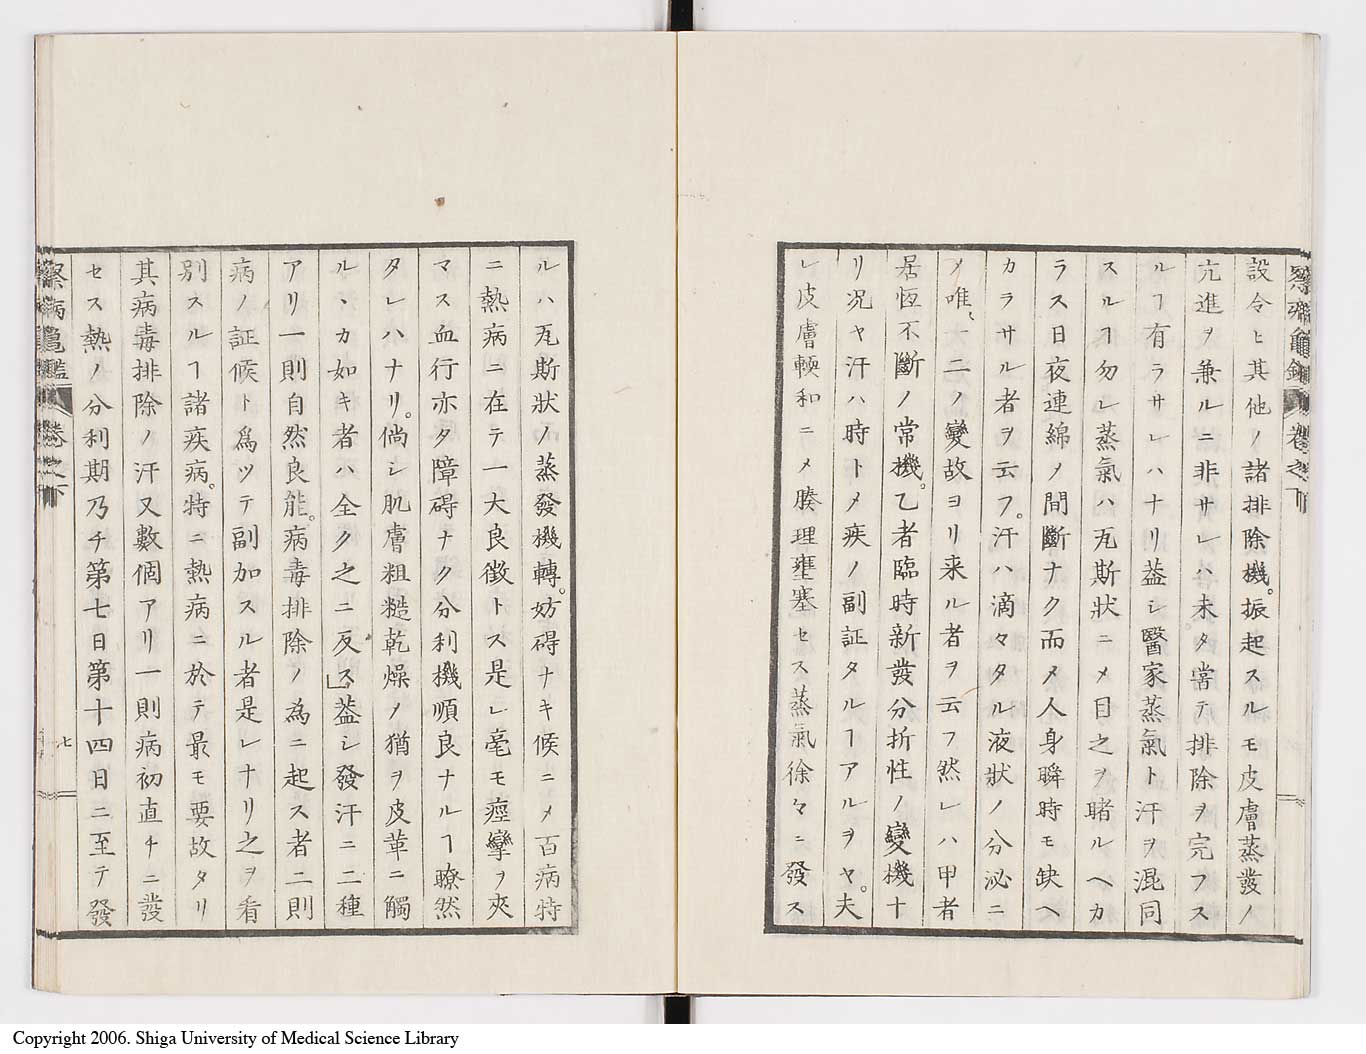 察病亀鑑 卷之下
設令ヒ其他ノ諸排除機。振起スルモ皮膚蒸發ノ
亢進ヲ兼ルニ非サレハ未タ甞テ排除ヲ完フス
ルヿ有ラサレハナリ葢シ醫家蒸氣ト汗ヲ混同
スルヿ勿レ蒸氣ハ瓦斯狀ニメ目之ヲ睹ルヘカ
ラス日夜連綿ノ間斷ナク而メ人身瞬時モ缺ヘ
カラサル者ヲ云フ。汗ハ滴々タル液狀ノ分泌ニ
メ唯、一二ノ變故ヨリ来ル者ヲ云フ然レハ甲者
居恆不斷ノ常機。乙者臨時新發分折性ノ變機十
リ況ヤ汗ハ時トメ疾ノ副証タルヿアルヲヤ。夫
レ皮膚輭和ニメ腠理壅塞セス蒸氣徐々ニ發ス
ルハ瓦斯狀ノ蒸發機轉。妨碍ナキ候ニメ百病特
ニ熱病ニ在テ一大良徴トス是レ毫モ痙攣ヲ夾
マス血行亦タ障碍ナク分利機順良ナルヿ瞭然
タレハナリ。倘シ肌膚粗糙乾燥ノ猶ヲ皮革ニ觸
ルヽカ如キ者ハ全ク之ニ反ス」葢シ發汗ニ二種
アリ一則自然良能。病毒排除ノ為ニ起ス者二則
病ノ証候ト爲ツテ副加スル者是レナリ之ヲ看
別スルヿ諸疾病。特ニ熱病ニ於テ最モ要故タリ
其病毒排除ノ汗又數個アリ一則病初直チニ發
セス熱ノ分利期乃チ第七日第十四日ニ至テ發
察病亀鑑 卷之下
七
Copyright 2006. Shiga University of Medical Science Library